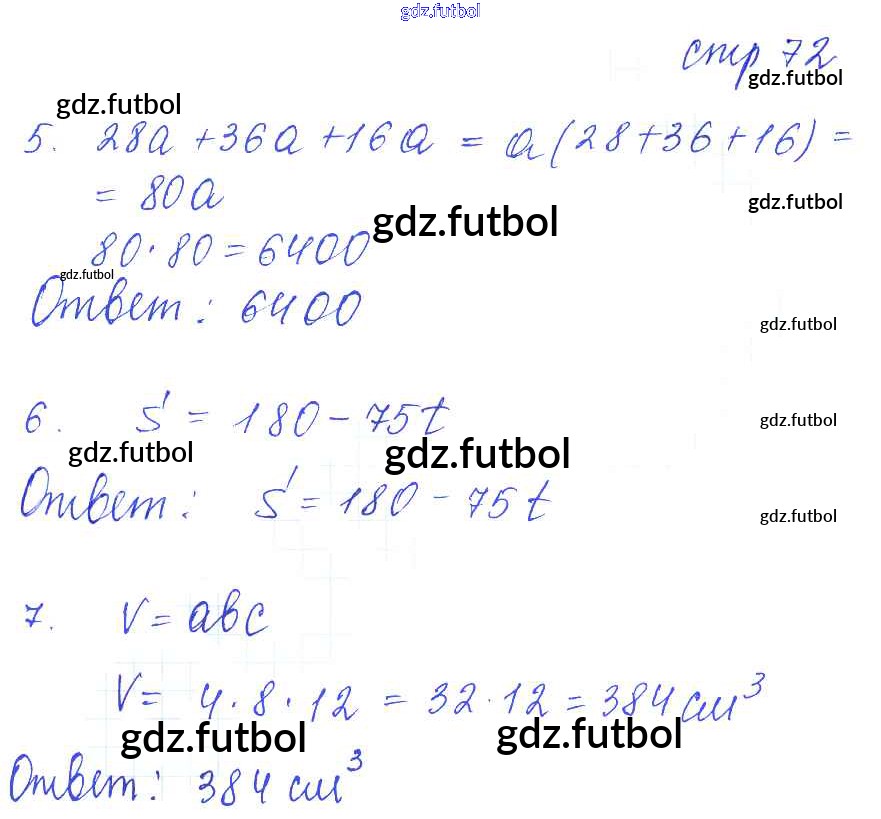 gdz.futbol
стр 72
gdz.futbol
gdz.futbol
5. 28a + 36a + 16a = a(28 + 36 + 16) =
= 80a
gdz.futbol
gdz.futbol
80 · 80 = 6400
gdz.futbol
Ответ: 6400
gdz.futbol
6. S' = 180 - 75t
gdz.futbol
gdz.futbol
gdz.futbol
Ответ: S' = 180 - 75t
gdz.futbol
7. V = abc
V = 4 · 8 · 12 = 32 · 12 = 384 см³
gdz.futbol
gdz.futbol
Ответ: 384 см³